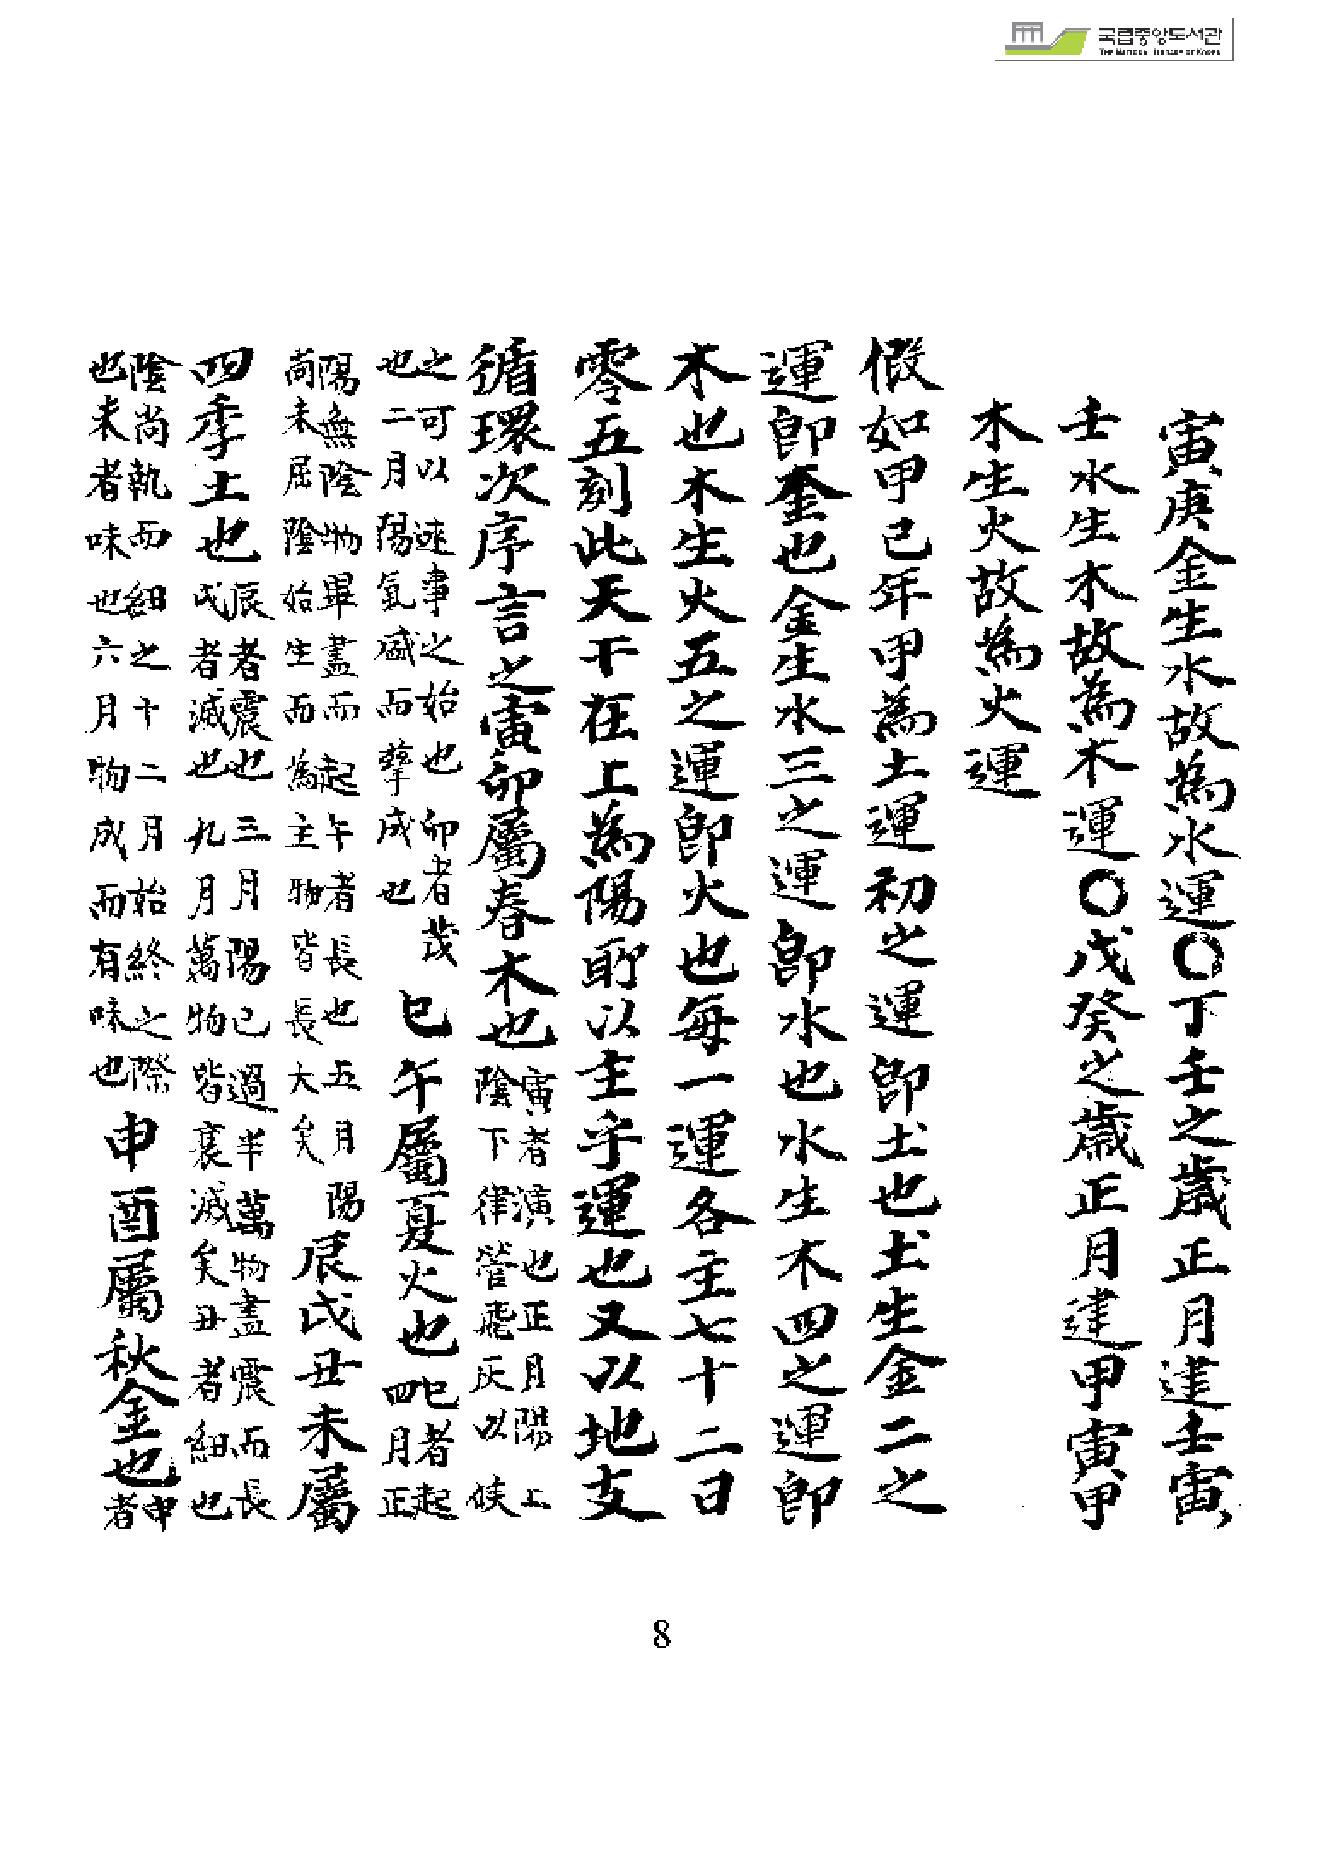 국립중앙도서관
THE NATIONAL LIBRARY OF KOREA
寅庚金生水故為水運○丁壬之歲正月建壬寅
壬水生木故為木運○戊癸之歲正月建甲寅甲
木生火故為火運
假如甲己年甲為土運初之運卽土也土生金二之
運卽金也金生水三之運卽水也水生木四之運卽
木也木生火五之運卽火也每一運各主七十二日
零五刻此天干在上為陽所以主乎運也又以地支
循環次序言之寅卯屬春木也
寅者演也正月陽上
陰下律管飛灰以候
之可以速事之始也卯者茂
也二月陽氣盛而孳成也
巳午屬夏火也
巳者起
四月正
陽無陰物畢盡而起午者長也五月陽
尚未屈陰始生而為主物皆長大矣
辰戌丑未屬
四季土也
辰者震也三月陽已過半萬物盡震而長
戌者滅也九月萬物皆衰滅矣丑者細也
陰尚執而細之十二月始終之際
也未者味也六月物成而有味也
申酉屬秋金也
申
者
8